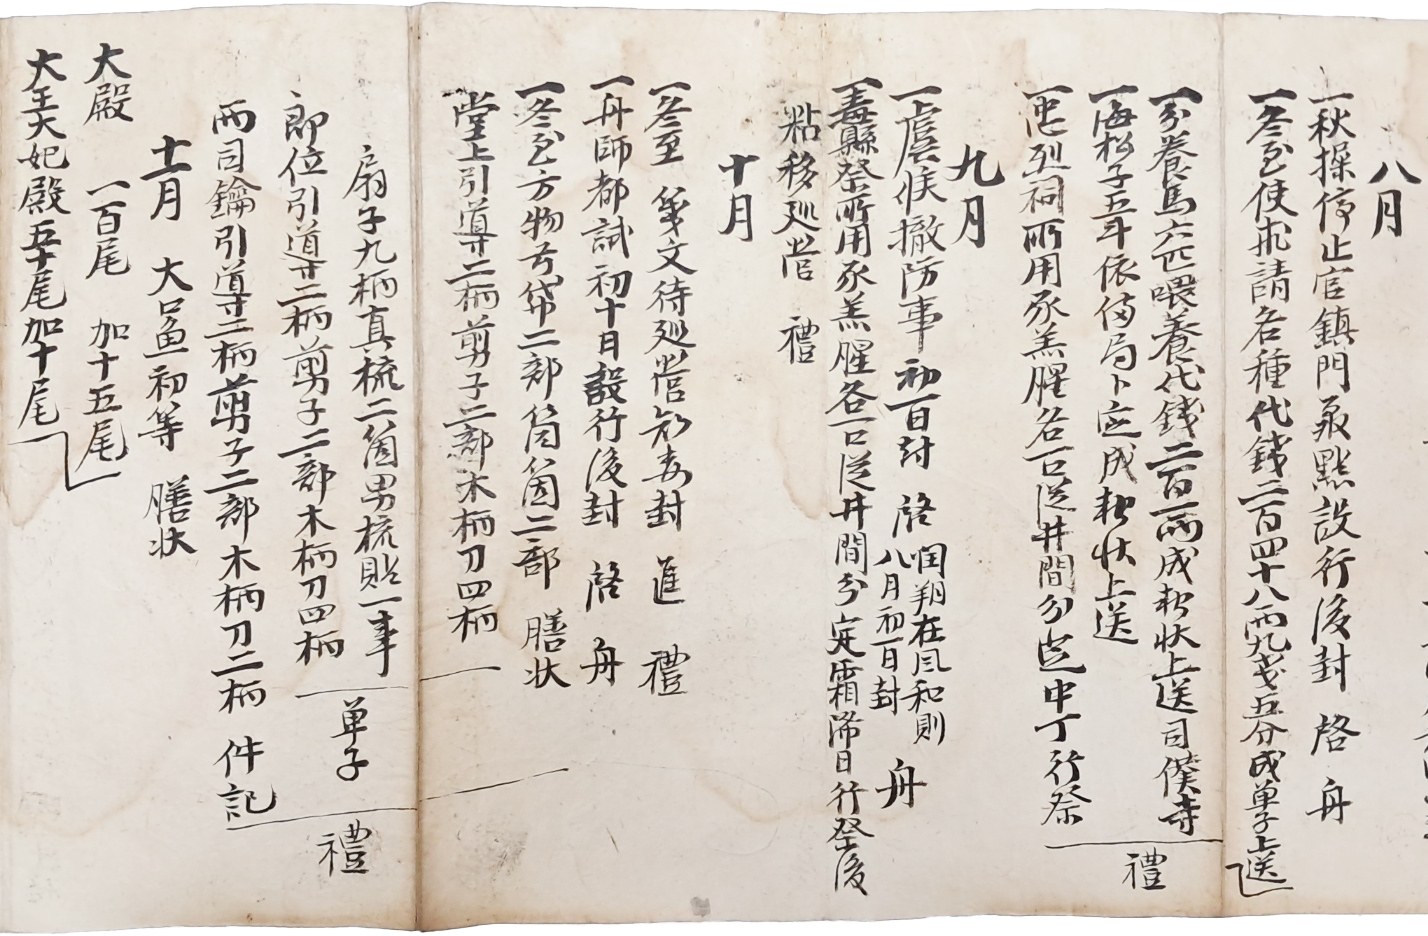 八月
一秋操停止官鎮門聚點設行後封 啓 舟
一冬至使求請各種代錢二百四十八兩九戔五分成單子上送
一分養馬六匹喂養代錢二百一兩成報狀上送司僕寺
一海松子五斗依備局卜定成報狀上送
一忠烈祠所用豕羔腥各一口從井間分定中丁行祭
禮
九月
一虞候撤防事初一日封 啓 閏朔在風和則八月初一日封 舟
一纛縣祭所用豕羔腥各一口從井間分定霜降日行祭後
粘移廵營 禮
十月
一冬至 箋文待廵營知委封 進 禮
一舟師都試初十日設行後封 啓 舟
一冬至方物弓帒二部筒箇二部 膳狀
堂上引導二柄剪子二部木柄刀四柄
扇子九柄真梳二箇男梳貼一事
郞位引導二柄剪子二部木柄刀四柄
單子
禮
兩司鑰引導二柄剪子二部木柄刀二柄 件記
十一月 大口魚初等 膳狀
大殿 一百尾 加十五尾
大王大妃殿五十尾加十尾